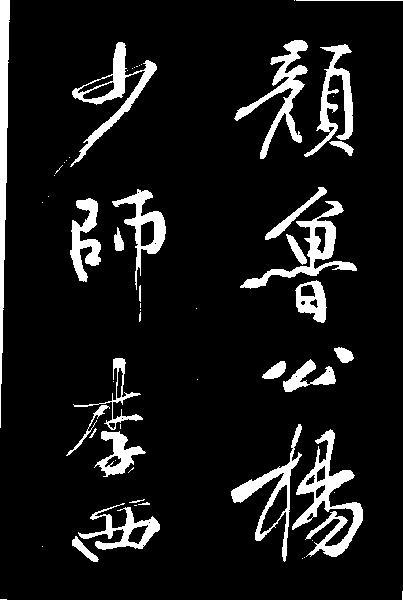 顏魯公楊
少師李西